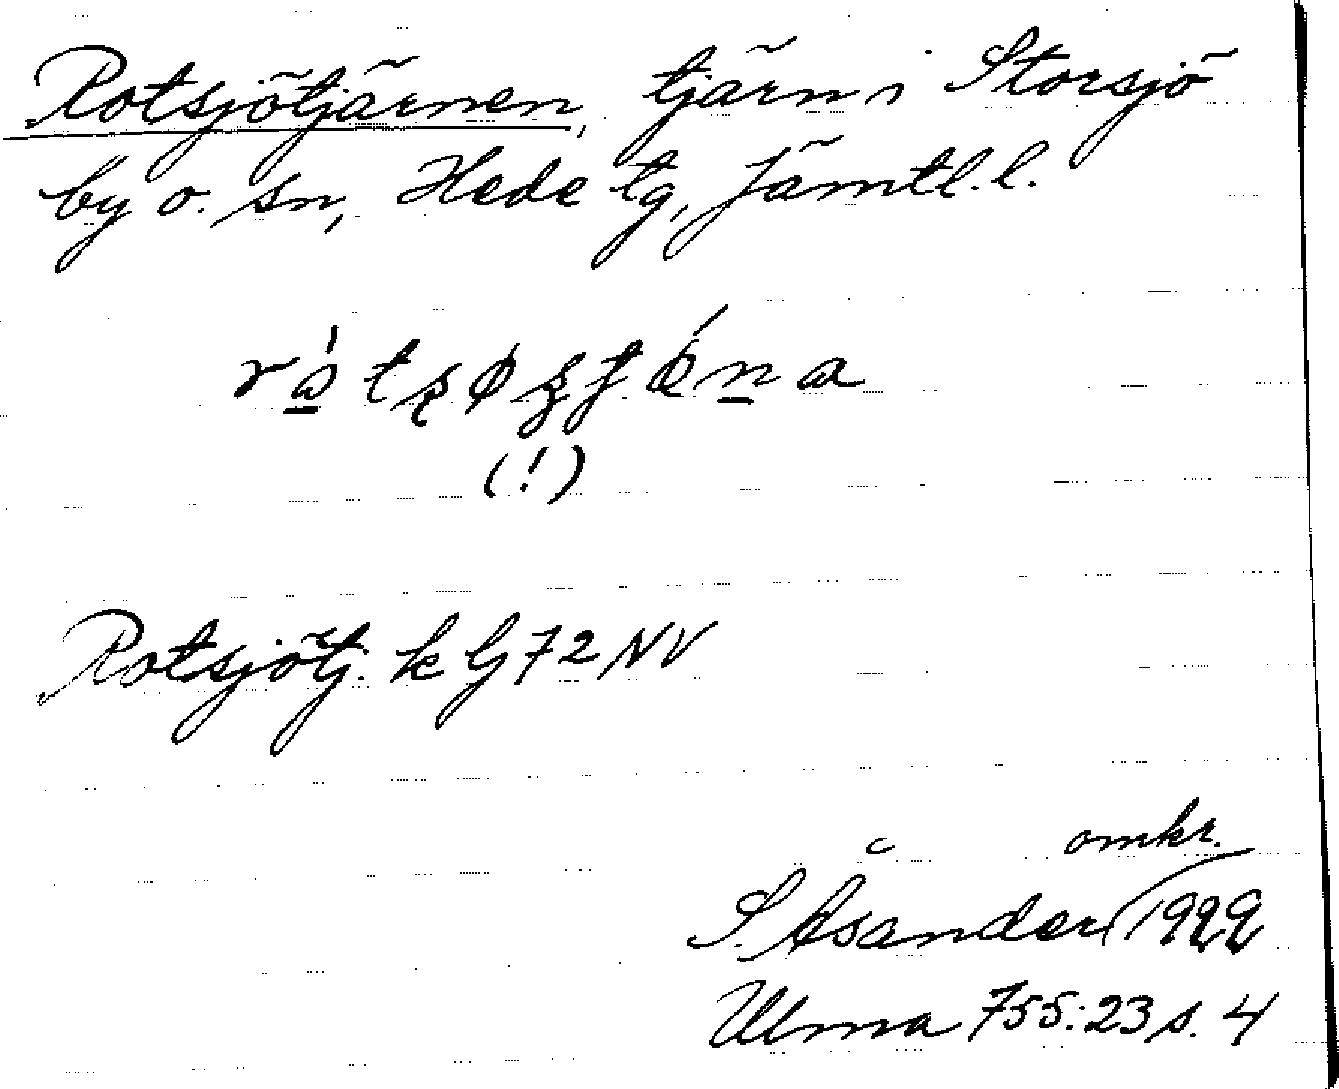 Rotsjötjärnen, tjärn i Storsjö
by o. sn, Hede tg, Jämtl. l.
(!)
Rotsjötj. k G 72 NV
omkr.
S. Åsander 1922
Ulma 755:23 s. 4